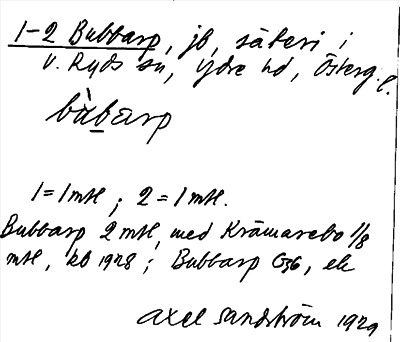 1-2 Bubbarp, jb, säteri i
V. Ryds sn, Ydre hd, Österg. l.
bàbarp
1 = 1 mtl ; 2 = 1 mtl.
Bubbarp 2 mtl, med Krämarebo 1/8
mtl, kb 1928 ; Bubbarp G36, ek
Axel Sandström 1929